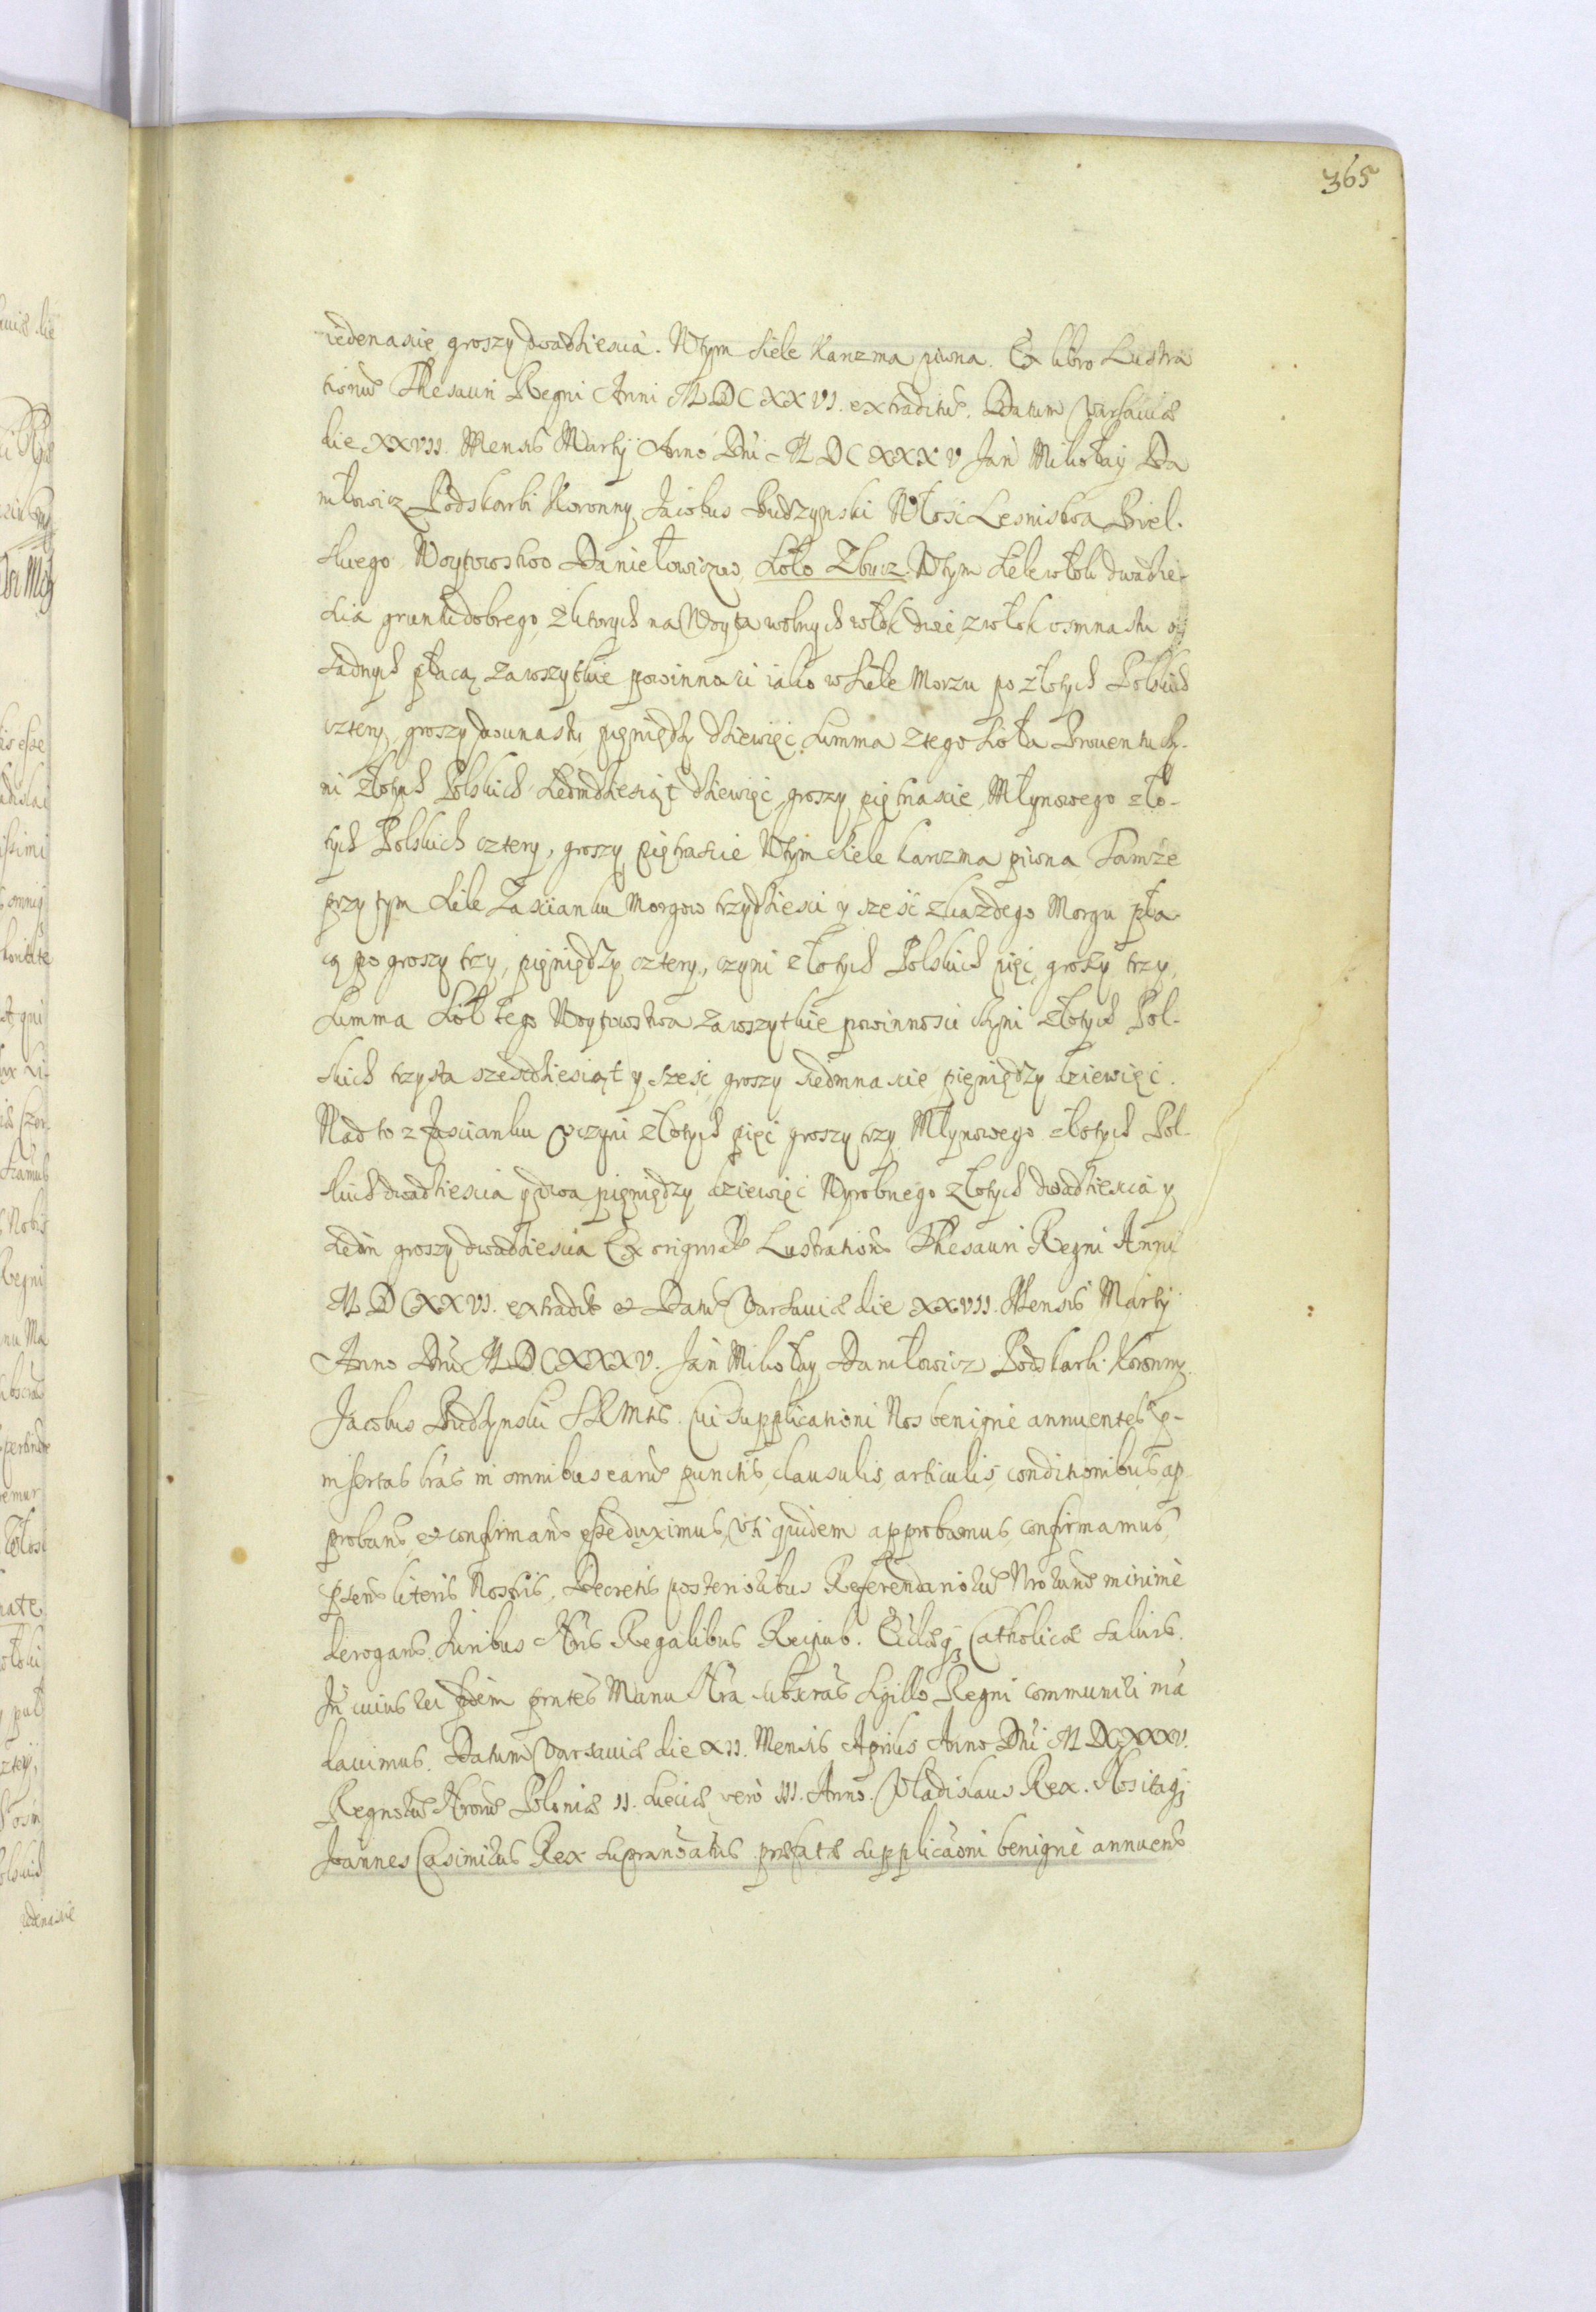 365
iedenascie groszy dwadziescia. Wtym siele Karczma piwna. Ex libro Lustra
tionum Thesauri Regni Anni MDCXXVI. extraditum. Datum Varsaviæ
die XXVII. Mensis Martij Anno Dni MDCXXXV Jan Mikołay Da
niłowicz Podskarbi Koronny Jacobus Budzynski Włosc Lesnistwa Biel.
skiego Woytowstwo Daniełowiczow Sioło Zbucz. Wtym siele włok dwadzie-
scia gruntu dobrego, z ktorych na Woyta wolnych włok dwie, z włok osmnastu osi
sadnych płacą za wszytkie powinnosci iako w siele Morzu po złotych Polskich
cztery, groszy dwunastu pieniędzy dziewięć Summa z tego sioła Prouentu czy-
ni złotych Polskich siedmdziesiąt dziewięć groszy piętnascie, Młynowego zło-
tych Polskich cztery, groszy piętnascie Wtym siele karczma piwna Tamze
przy tym siele Zascianku Morgow trzydziesci y szesc z kazdego Morgu pła-
cą po groszy trzy, pieniędzy cztery, czyni złotych Polskich pięć, groszy trzy,
Summa Sioł tego Woytowstwa za wszytkie powinnosci czyni złotych Pol-
skich trzysta szescdziesiąt y szesc groszy siedmnascie pieniędzy dziewięć.
Nad to z Zascianku uczyni złotych pięć groszy trzy Młynowego złotych Pol-
skich dwadziescia y dwa pieniędzy dziewięć Wyrobnego złotych dwadziescia y
ieden groszy dwadziescia Ex originali Lustrationis Thesauri Regni Anni
MDCXXVI. extradit et Datum Varsaviæ die XXVII. Mensis Martij
Anno Dni MDCXXXV. Jan Mikołay Daniłowicz Podskarbi Koronny.
Jacobus Budzynski SRMtis. Cui Supplicationi Nos benigne annuentes
insertas lras in omnibus earum punctis, clausulis, articulis, conditionibus, ap
proban et confirman esse duximus, vti quidem approbamus, confirmamus,
literis Nostris, Decretis posterioribus Referendariorum Nrorum minimè
derogan. Juribus Nris Regalibus Reipub. Eccl. q3 Catholicæ saluis.
In cuius rei fidem prntes Manu Nra subscras Sigillo Regni communiri man
dauimus. Datum Varsaviæ die XII. Mensis Aprilis Anno Dni MDCXXXV.
Regnorum Nrorum Poloniæ II. Sueciæ verò III. Anno. Vladislaus Rex. Nos itaq3
Joannes Casimirus Rex supranoatus præfatæ supplicaoni benigne annuen